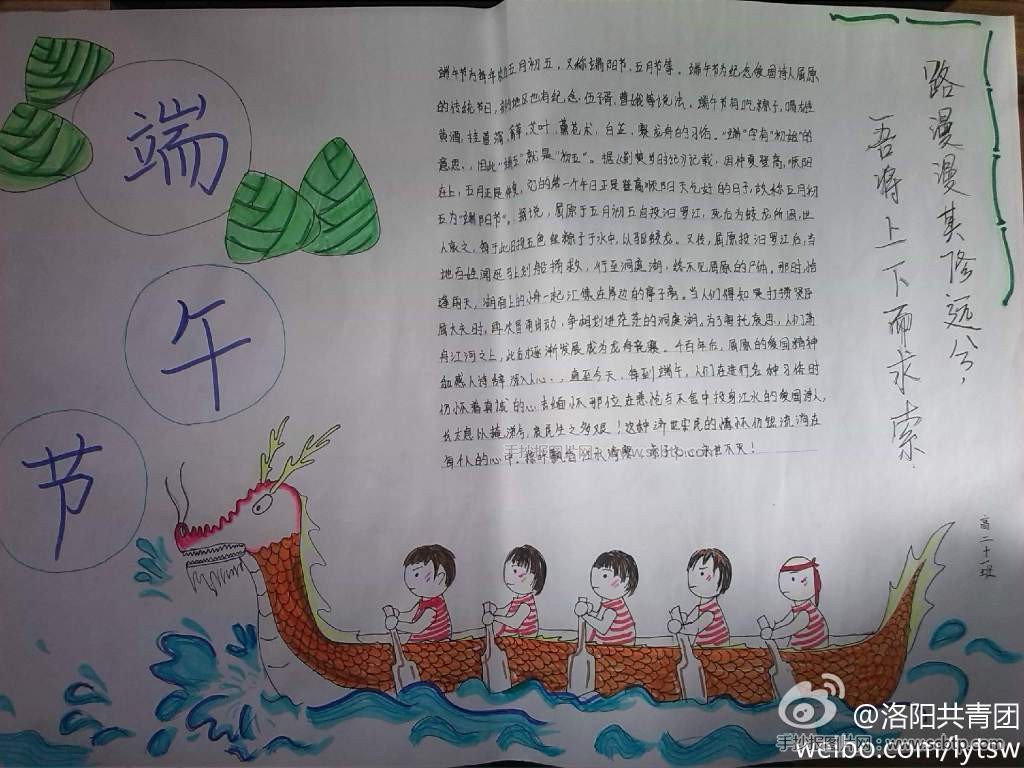 端
午
节
端午节为每年农历五月初五，又称端阳节，五月节等。端午节为纪念爱国诗人屈原
的传统节日，部分地区也有纪念伍子胥、曹娥等说法。端午节有吃粽子，喝雄
黄酒，挂菖蒲、艾叶，薰苍术，白芷，赛龙舟的习俗。“端”字有“初始”的
意思，因此“端五”就是“初五”。据《荆楚岁时记》记载，因仲夏登高，顺阳
在上，五月正是仲夏，它的第一个午日正是登高顺阳天气好的日子，故称五月初
五为“端阳节”。据说，屈原于五月初五自投汨罗江，死后为蛟龙所困，世
人哀之，每于此日投五色丝粽子于水中，以驱蛟龙。又传，屈原投汨罗江后，当
地百姓闻讯马上划船捞救，行至洞庭湖，终不见屈原的尸体。那时，恰
逢雨天，湖面上的小舟一起汇集在岸边的亭子旁。当人们得知是打捞贤臣
屈大夫时，再次冒雨出动，争相划进茫茫的洞庭湖。为了寄托哀思，人们荡
舟江河之上，此后逐渐发展成为龙舟竞赛。千百年后，屈原的爱国精神
和感人诗辞深入人心，直至今天，每到端午，人们在进行各种习俗时
仍怀着真诚的心去缅怀那位在悲怆与不舍中投身江水的爱国诗人，
长太息以掩涕兮，哀民生之多艰！这种济世安民的情怀仍然流淌在
每个人的心中。
路漫漫其修远兮，
吾将上下而求索。
高二十一班
@洛阳共青团
手抄报图片网
weibo.com/lytsw